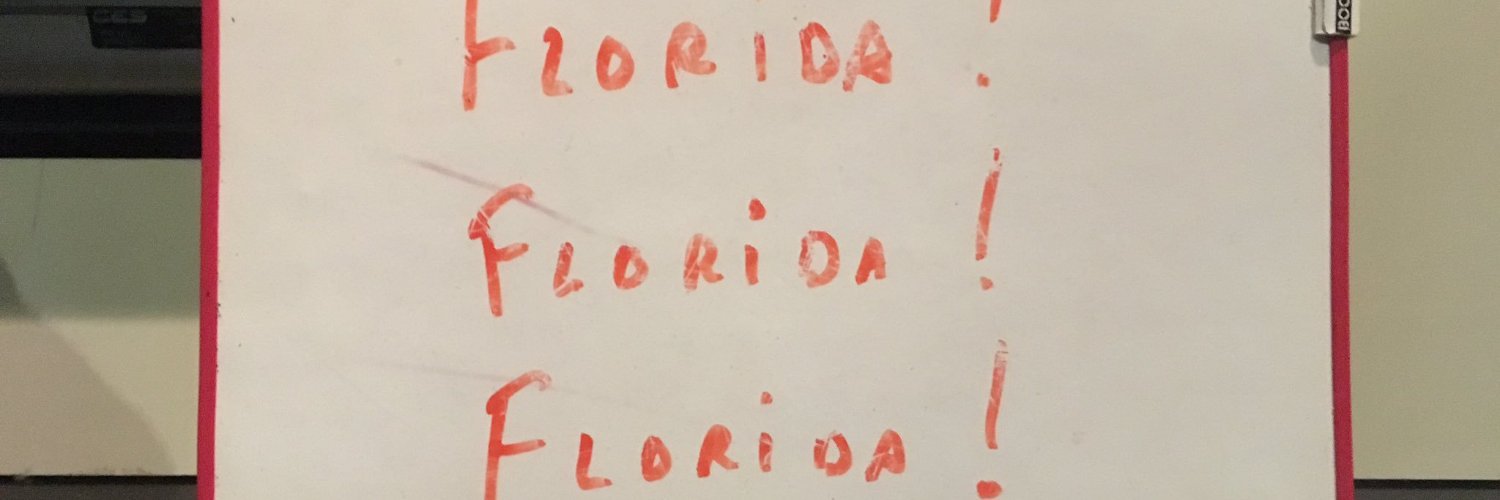 FLORIDA!
FLORiDA!
FLORiDA!